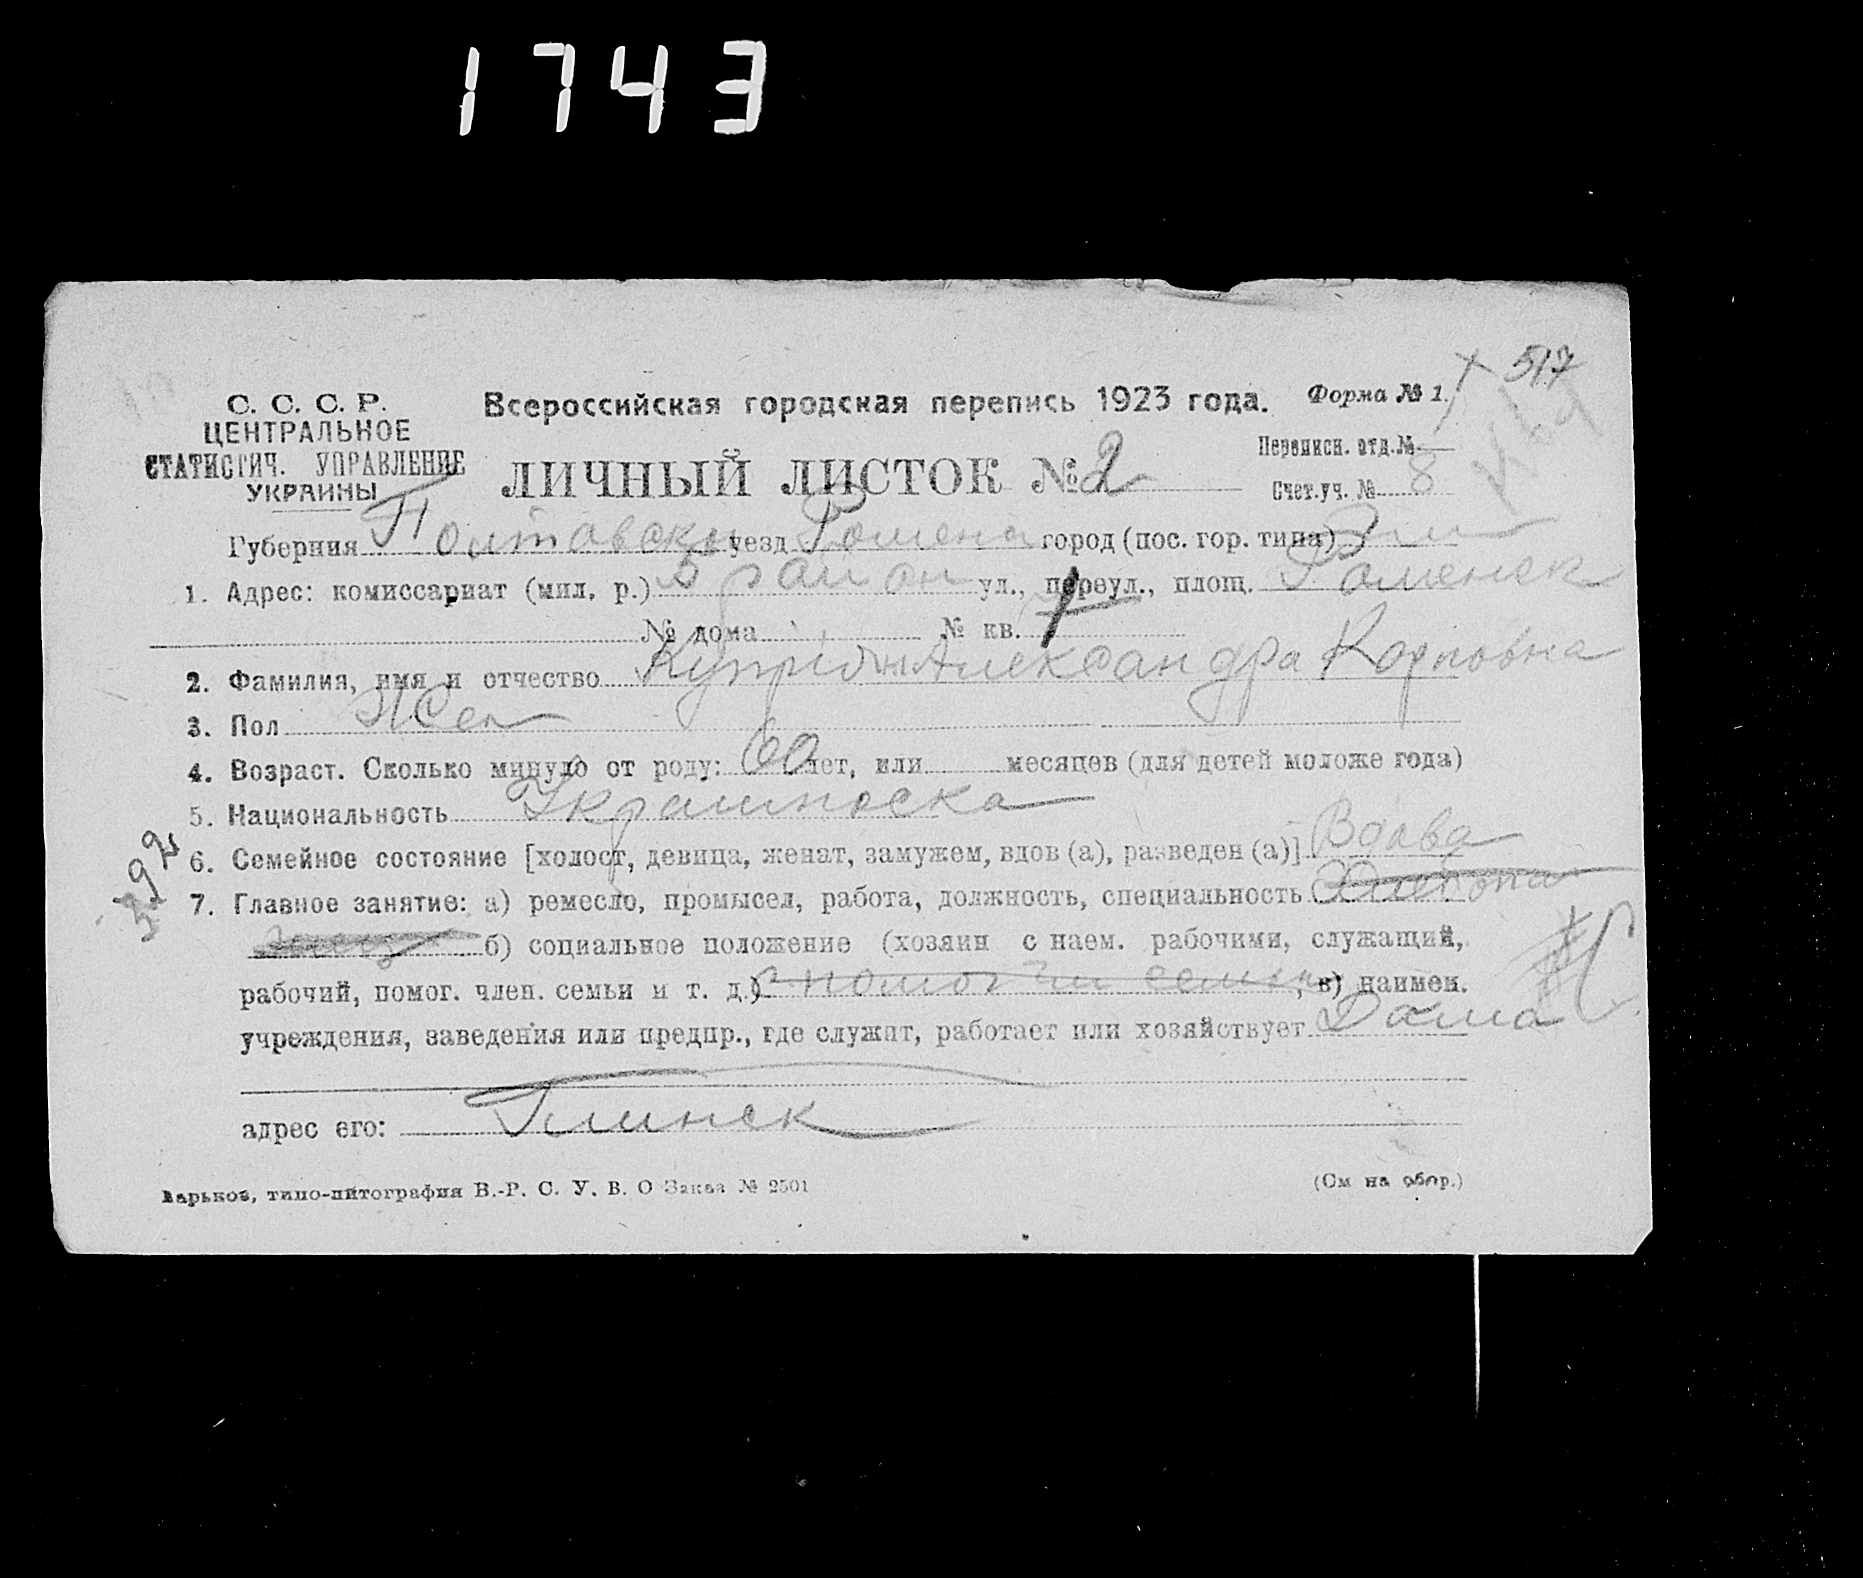 1743
517
С. С. С. Р.
ЦЕНТРАЛЬНОЕ
СТАТИСТИЧ. УПРАВЛЕНИЕ
УКРАИНЫ
Всероссийская городская перепись 1923 года.
Форма № 1.
ЛИЧНЫЙ ЛИСТОК № 2
Переписн. отд. №
Счет. уч. № 8
Губерния Полтавски уезд Ромена город (пос. гор. типа)
1. Адрес: комиссариат (мил. р.) 3 район ул., переул., площ. Роменск
№ дома № кв.
2. Фамилия, имя и отчество Куприян Александра Карповна
3. Пол Жен
4. Возраст. Сколько минуло от роду: 60 лет, или месяцев (для детей моложе года)
5. Национальность Украинска
6. Семейное состояние [холост, девица, женат, замужем, вдов (а), разведен (а)] Вдова
392
7. Главное занятие: а) ремесло, промысел, работа, должность, специальность
б) социальное положение (хозяин с наем. рабочими, служащий,
рабочий, помог. член. семьи и т. д.) помогчи семьи, в) наимен.
учреждения, заведения или предпр., где служит, работает или хозяйствует Дома
адрес его: Глинск
Харьков, типо-литография В.-Р. С. У. В. О Заказ № 2501
(См на обор.)